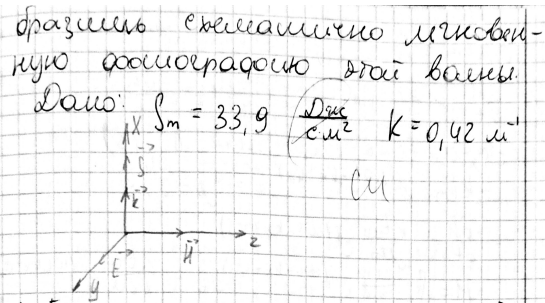 бразить схематично мгновен-
ную фотографию этой волны.
Дано: Sm = 33,9 Дж/см² K = 0,42 м⁻¹
X
S
k
см
H
z
E
y